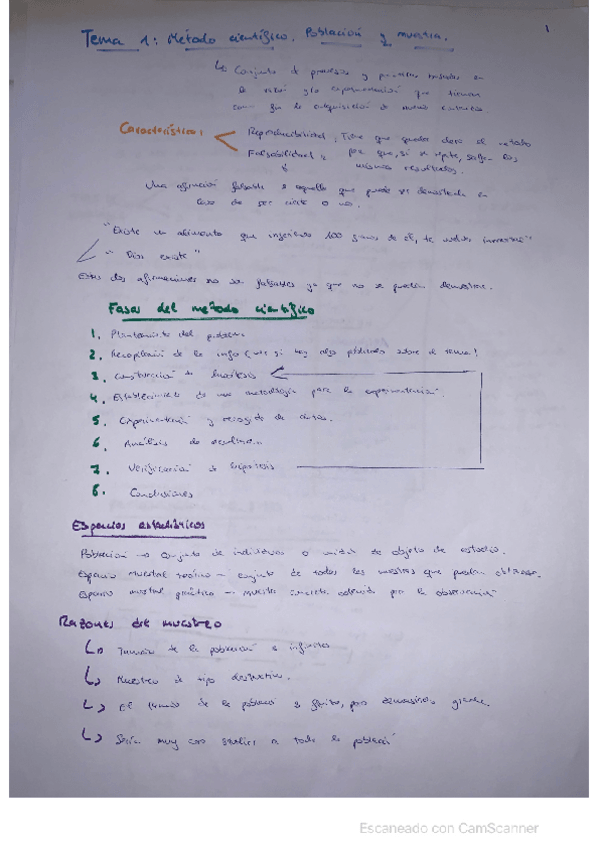 1
Tema 1: Método científico. Población y muestra.
↳ Conjunto de procesos y basados en
la razón y/o experimentación que tienen
como fin la adquisición de nuevo
Características: Reproducibilidad; Tiene que quedar claro el método
Falsabilidad: para que, si se repite, salgan los
mismos resultados.
Una afirmación falsable es aquella que puede ser demostrada en
caso de ser cierta o no.
"Existe un alimento que ingeriendo 100 gramos de él, te vuelves inmortal"
"Dios existe"
Estas dos afirmaciones no son falsables ya que no se pueden demostrar.
Fases del método científico
1. Planteamiento del problema
2. Recopilación de la info (ver si hay algo publicado sobre el tema)
3. Construcción de hipótesis
4. Establecimiento de una metodología para la experimentación.
5. Experimentación y recogida de datos.
6. Análisis de resultados
7. Verificación de hipótesis
8. Conclusiones
Espacios estadísticos
Población → Conjunto de individuos o unidad de objeto de estudio.
Espacio muestral teórico - conjunto de todas las muestras que puedan obtenerse.
Espacio muestral práctico - muestra concreta obtenida por la observación
Razones de muestreo
↳ Tamaño de la población es infinito
↳ Muestreo de tipo destructivo.
↳ El tamaño de la población es finito, pero demasiado grande.
↳ Sería muy caro a toda la población
Escaneado con CamScanner